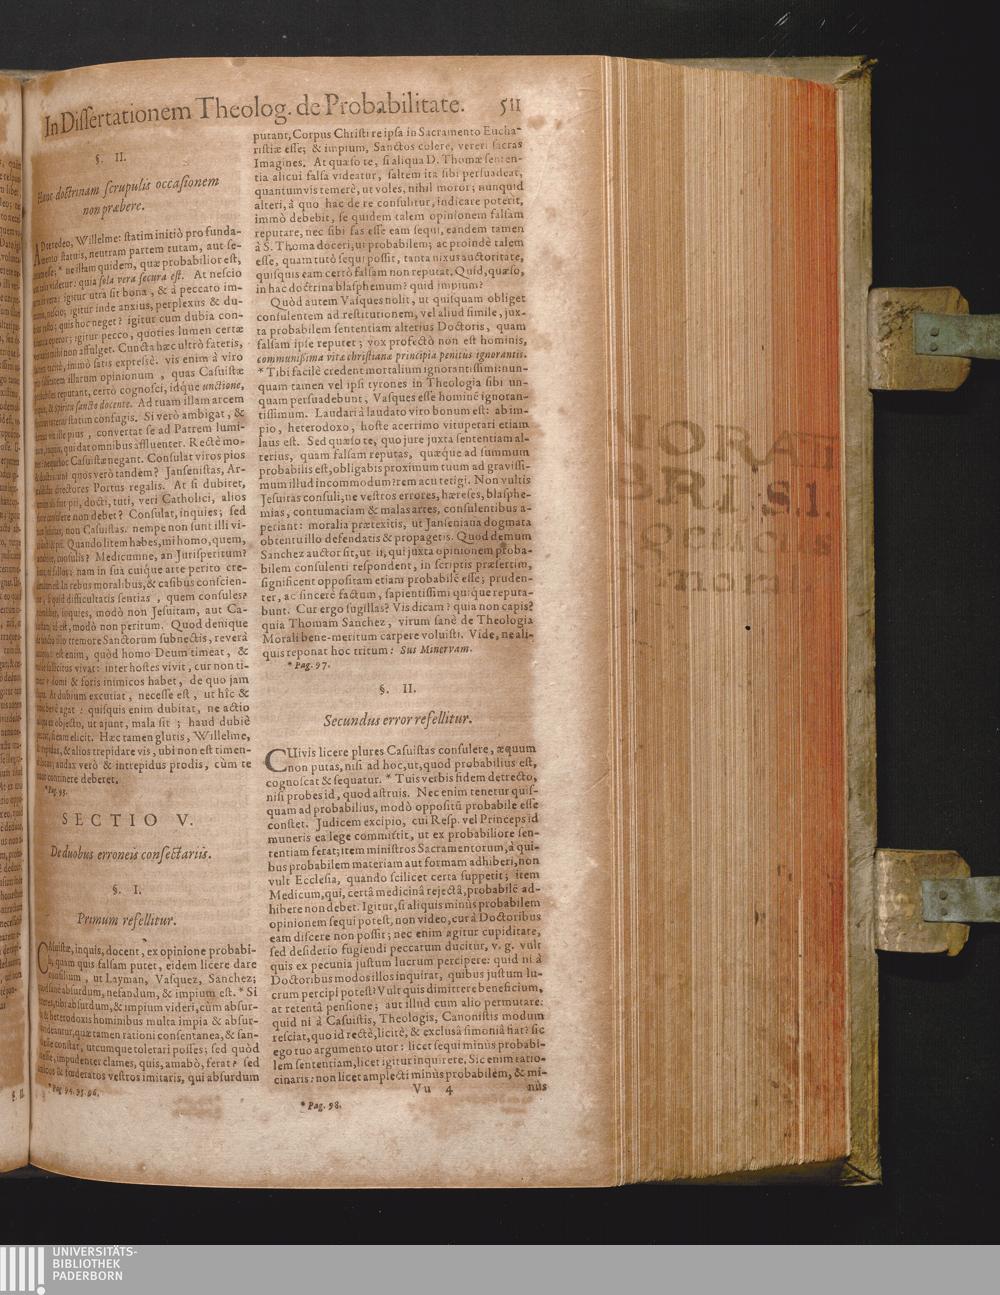 In Dissertationem Theolog. de Probabilitate. 511
§. II.
Hanc doctrinam scrupulis occasionem
non præbere.
deredeo, Willelme: statim initiò pro funda-
statuis, neutram partem tutam, aut se-
esse; * ne illam quidem, quæ probabilior est,
videtur: quia sola vera secura est. At nescio
igitur utra sit bona, & à peccato im-
igitur inde anxius, perplexus & du-
quis hoc neget? igitur cum dubia con-
igitur pecco, quoties lumen certæ
mihi non affulget. Cuncta hæc ultrò fateris,
immò satis expressè. vis enim à viro
illarum opinionum, quas Casuistæ
reputant, certò cognosci, idque unctione,
& spiritu sancto docente. Ad tuam illam arcem
statim confugis. Si verò ambigat, &
ille pius, convertat se ad Patrem lumi-
inquis, qui dat omnibus affluenter. Rectè mo-
hoc Casuistæ negant. Consulat viros pios
& doctos: ani quos verò tandem? Jansenistas, Ar-
directores Portus regalis. At si dubitet,
sint pii, docti, tuti, veri Catholici, alios
non debet? Consulat, inquies; sed
non Casuistas. nempe non sunt illi vi-
pii. Quando litem habes, mi homo, quem,
consulis? Medicumne, an Jurisperitum?
fallor: nam in sua cuique arte perito cre-
In rebus moralibus, & casibus conscien-
si quid difficultatis sentias, quem consules?
inquies, modò non Jesuitam, aut Ca-
id est, modò non peritum. Quod denique
illo tremore Sanctorum subnectis, reverà
est enim, quòd homo Deum timeat, &
sollicitus vivat: inter hostes vivit, cur non ti-
domi & foris inimicos habet, de quo jam
At dubium excutiat, necesse est, ut hîc &
agat: quisquis enim dubitat, ne actio
ex objecto, ut ajunt, mala sit; haud dubiè
si eam elicit. Hæc tamen glutis, Willelme,
& alios trepidare vis, ubi non est timen-
audax verò & intrepidus prodis, cùm te
continere deberet.
* Pag. 93.
SECTIO V.
De duobus erroneis consectariis.
§. I.
Primum refellitur.
Casuistæ, inquis, docent, ex opinione probabi-
li, quam quis falsam putet, eidem licere dare
consilium, ut Layman, Vasquez, Sanchez;
quod sanè absurdum, nefandum, & impium est. * Si
tibi absurdum, & impium videri, cùm absur-
heterodoxis hominibus multa impia & absur-
videantur, quæ tamen rationi consentanea, & san-
constat, utcumque tolerari posses; sed quòd
esse, impudenter clames, quis, amabò, ferat? sed
& fœderatos vestros imitaris, qui absurdum
* Pag. 94. 95. 96.
putant, Corpus Christi re ipsa in Sacramento Eucha-
ristiæ esse; & impium, Sanctos colere, vereri sacras
Imagines. At quæso te, si aliqua D. Thomæ senten-
tia alicui falsa videatur, saltem ita sibi persuadeat,
quantumvis temerè, ut voles, nihil moror; nunquid
alteri, à quo hac de re consulitur, indicare poterit,
immò debebit, se quidem talem opinionem falsam
reputare, nec sibi fas esse eam sequi, eandem tamen
à S. Thoma doceri, ut probabilem; ac proindè talem
esse, quam tutò sequi possit, tanta nixus auctoritate,
quisquis eam certò falsam non reputat. Quid, quæso,
in hac doctrina blasphemum? quid impium?
Quòd autem Vasques nolit, ut quisquam obliget
consulentem ad restitutionem, vel aliud simile, jux-
ta probabilem sententiam alterius Doctoris, quam
falsam ipse reputet; vox profectò non est hominis,
communißima vitæ christianæ principia penitùs ignorantis.
* Tibi facilè credent mortalium ignorantissimi: nun-
quam tamen vel ipsi tyrones in Theologia sibi un-
quam persuadebunt, Vasques esse hominé ignoran-
tissimum. Laudari à laudato viro bonum est: ab im-
pio, heterodoxo, hoste acerrimo vituperari etiam
laus est. Sed quæso te, quo jure juxta sententiam al-
terius, quam falsam reputas, quæque ad summum
probabilis est, obligabis proximum tuum ad gravissi-
mum illud incommodum? rem acu tetigi. Non vultis
Jesuitas consuli, ne vestros errores, hæreses, blasphe-
mias, contumaciam & malas artes, consulentibus a-
periant: moralia prætexitis, ut Janseniana dogmata
obtentu illo defendatis & propagetis. Quod demum
Sanchez auctor sit, ut ii, qui juxta opinionem proba-
bilem consulenti respondent, in scriptis præsertim,
significent oppositam etiam probabilè esse; pruden-
ter, ac sincerè factum, sapientissimi quique reputa-
bunt. Cur ergo sugillas? Vis dicam? quia non capis?
quia Thomam Sanchez, virum sanè de Theologia
Morali bene-meritum carpere voluisti. Vide, ne ali-
quis reponat hoc tritum: Sus Minervam.
* Pag. 97.
§. II.
Secundus error refellitur.
CUivis licere plures Casuistas consulere, æquum
non putas, nisi ad hoc, ut, quod probabilius est,
cognoscat & sequatur. * Tuis verbis fidem detrecto,
nisi probes id, quod astruis. Nec enim tenetur quis-
quam ad probabilius, modò oppositũ probabile esse
constet. Judicem excipio, cui Resp. vel Princeps id
muneris ea lege commisit, ut ex probabiliore sen-
tentiam ferat; item ministros Sacramentorum, à qui-
bus probabilem materiam aut formam adhiberi, non
vult Ecclesia, quando scilicet certa suppetit; item
Medicum, qui, certâ medicinâ rejectâ, probabilē ad-
hibere non debet. Igitur, si aliquis minùs probabilem
opinionem sequi potest, non video, cur à Doctoribus
eam discere non possit; nec enim agitur cupiditate,
sed desiderio fugiendi peccatum ducitur, v. g. vult
quis ex pecunia justum lucrum percipere: quid ni à
Doctoribus modos illos inquirat, quibus justum lu-
crum percipi potest? Vult quis dimittere beneficium,
at retentâ pensione; aut illud cum alio permutare:
quid ni à Casuistis, Theologis, Canonistis modum
resciat, quo id rectè, licitè, & exclusâ simoniâ fiat? sic
ego tuo argumento utor: licet sequi minùs probabi-
lem sententiam, licet igitur inquirere. Sic enim ratio-
cinaris: non licet amplecti minùs probabilem, & mi-
Vu 4 nùs
* Pag. 98.
S.I.
UNIVERSITÄTS-
BIBLIOTHEK
PADERBORN